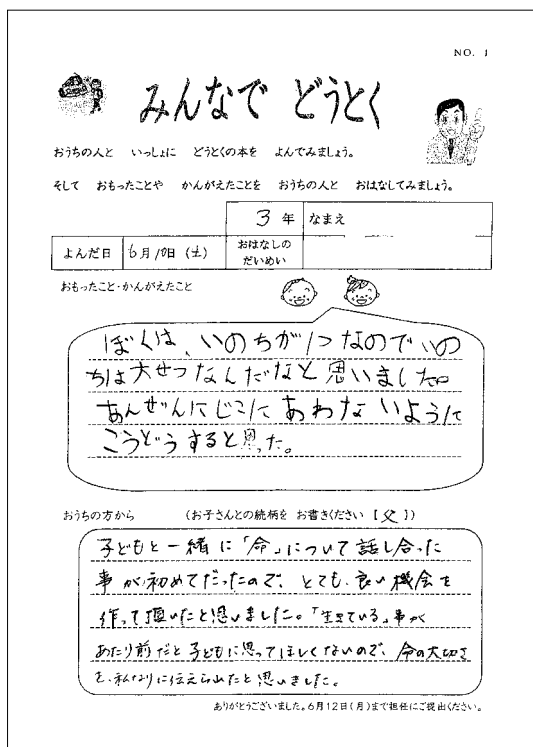 NO. 1
みんなで どうとく
おうちの人と いっしょに どうとくの本を よんでみましょう。
そして おもったことや かんがえたことを おうちの人と おはなしてみましょう。
3 年 なまえ
よんだ日 6月10日 (土) おはなしの だいめい
おもったこと・かんがえたこと
ぼくは、いのちが1つなのでいの
ちは大せつなんだなと思いました。
あんぜんにじこにあわないように
こうどうすると思った。
おうちの方から (お子さんとの続柄を お書きください【 父 】)
子どもと一緒に「命」について話し合った
事が初めてだったので、とても良い機会を
作って頂いたと思いました。「生きている」事が
あたり前だと子どもに思ってほしくないので、命の大切さ
を、私なりに伝えられたと思いました。
ありがとうございました。6月12日(月)まで担任にご提出ください。